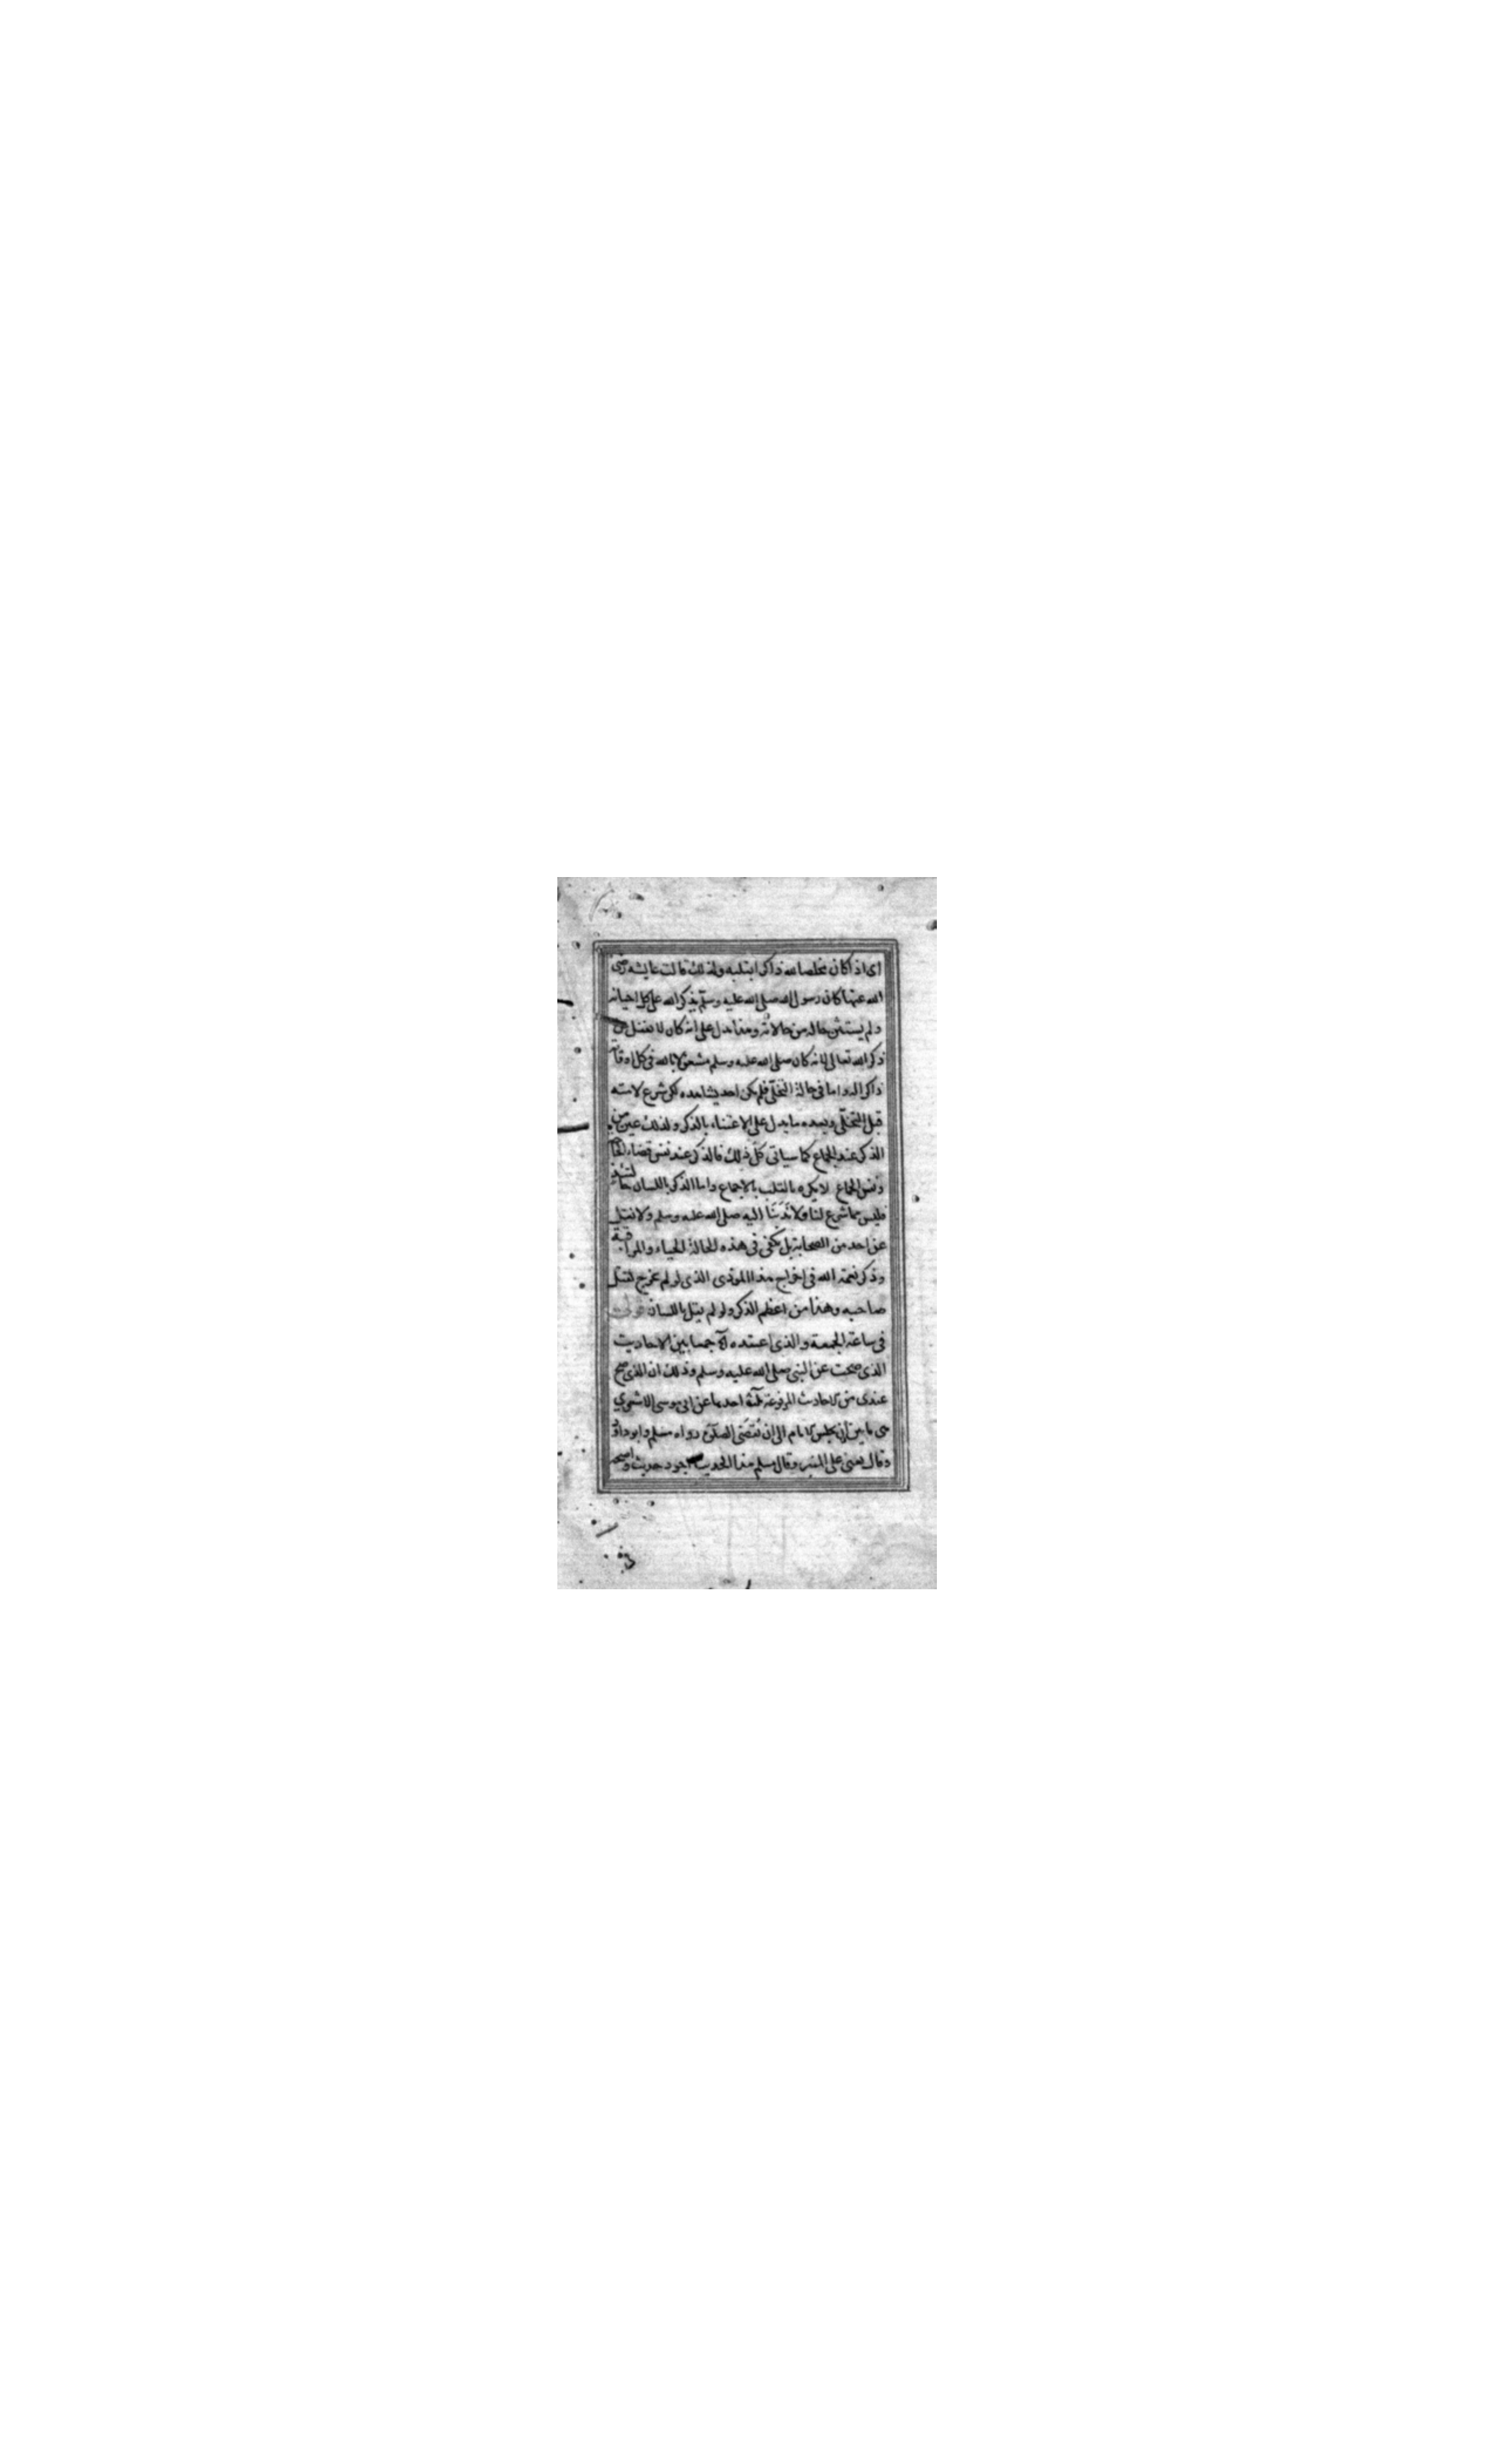 اى اذا كان مخلصا لله ذاكرا بقلبه ولذلك قالت عايشه رضى
الله عنها كان رسول الله صلى الله عليه وسلم يذكر الله على كل احيانه
ولم يستثن حاله من حالاته وهذا يدل على انه كان لا يغفل عن
ذكر الله تعالى لانه كان صلى الله عليه وسلم مشغولا بالله فى كل اوقاته
ذاكرا له واما فى حالة التخلّى فلم يكن احد يشاهده لكن شرع لامته
قبل التخلّى وبعده ما يدل على الاعتناء بالذكر ولذلك عين من
الذكر عند الجماع كما سياتى كلّ ذلك فالذكر عند نفس قضاء الحاجة
ونفس الجماع لا يكره بالقلب بالاجماع واما الذكر باللسان حالتئذ
فليس مما شرع لنا ولا نَدَبَنَا اليه صلى الله عليه وسلم ولا نقل
عن احد من الصحابة بل يكفى فى هذه الحالة الحياء والمراقبة
وذكر نعمة الله فى اخراج هذا الموذى الذى لو لم يخرج لقتل
صاحبه وهذا من اعظم الذكر ولو لم يقل باللسان قولت
فى ساعة الجمعة والذى اعتقده جمعا بين الاحاديث
الذى صحت عن النبى صلى الله عليه وسلم وذلك ان الذى صح
عندى من الاحاديث المرفوعة ثلثة احدها عن ابى موسى الاشعري
هى ما بين ان يجلس الامام الى ان تُقضَى الصلوة رواه مسلم وابو داود
وقال يعنى على المنبر وقال مسلم هذا الحديث اجود حديث واصحه